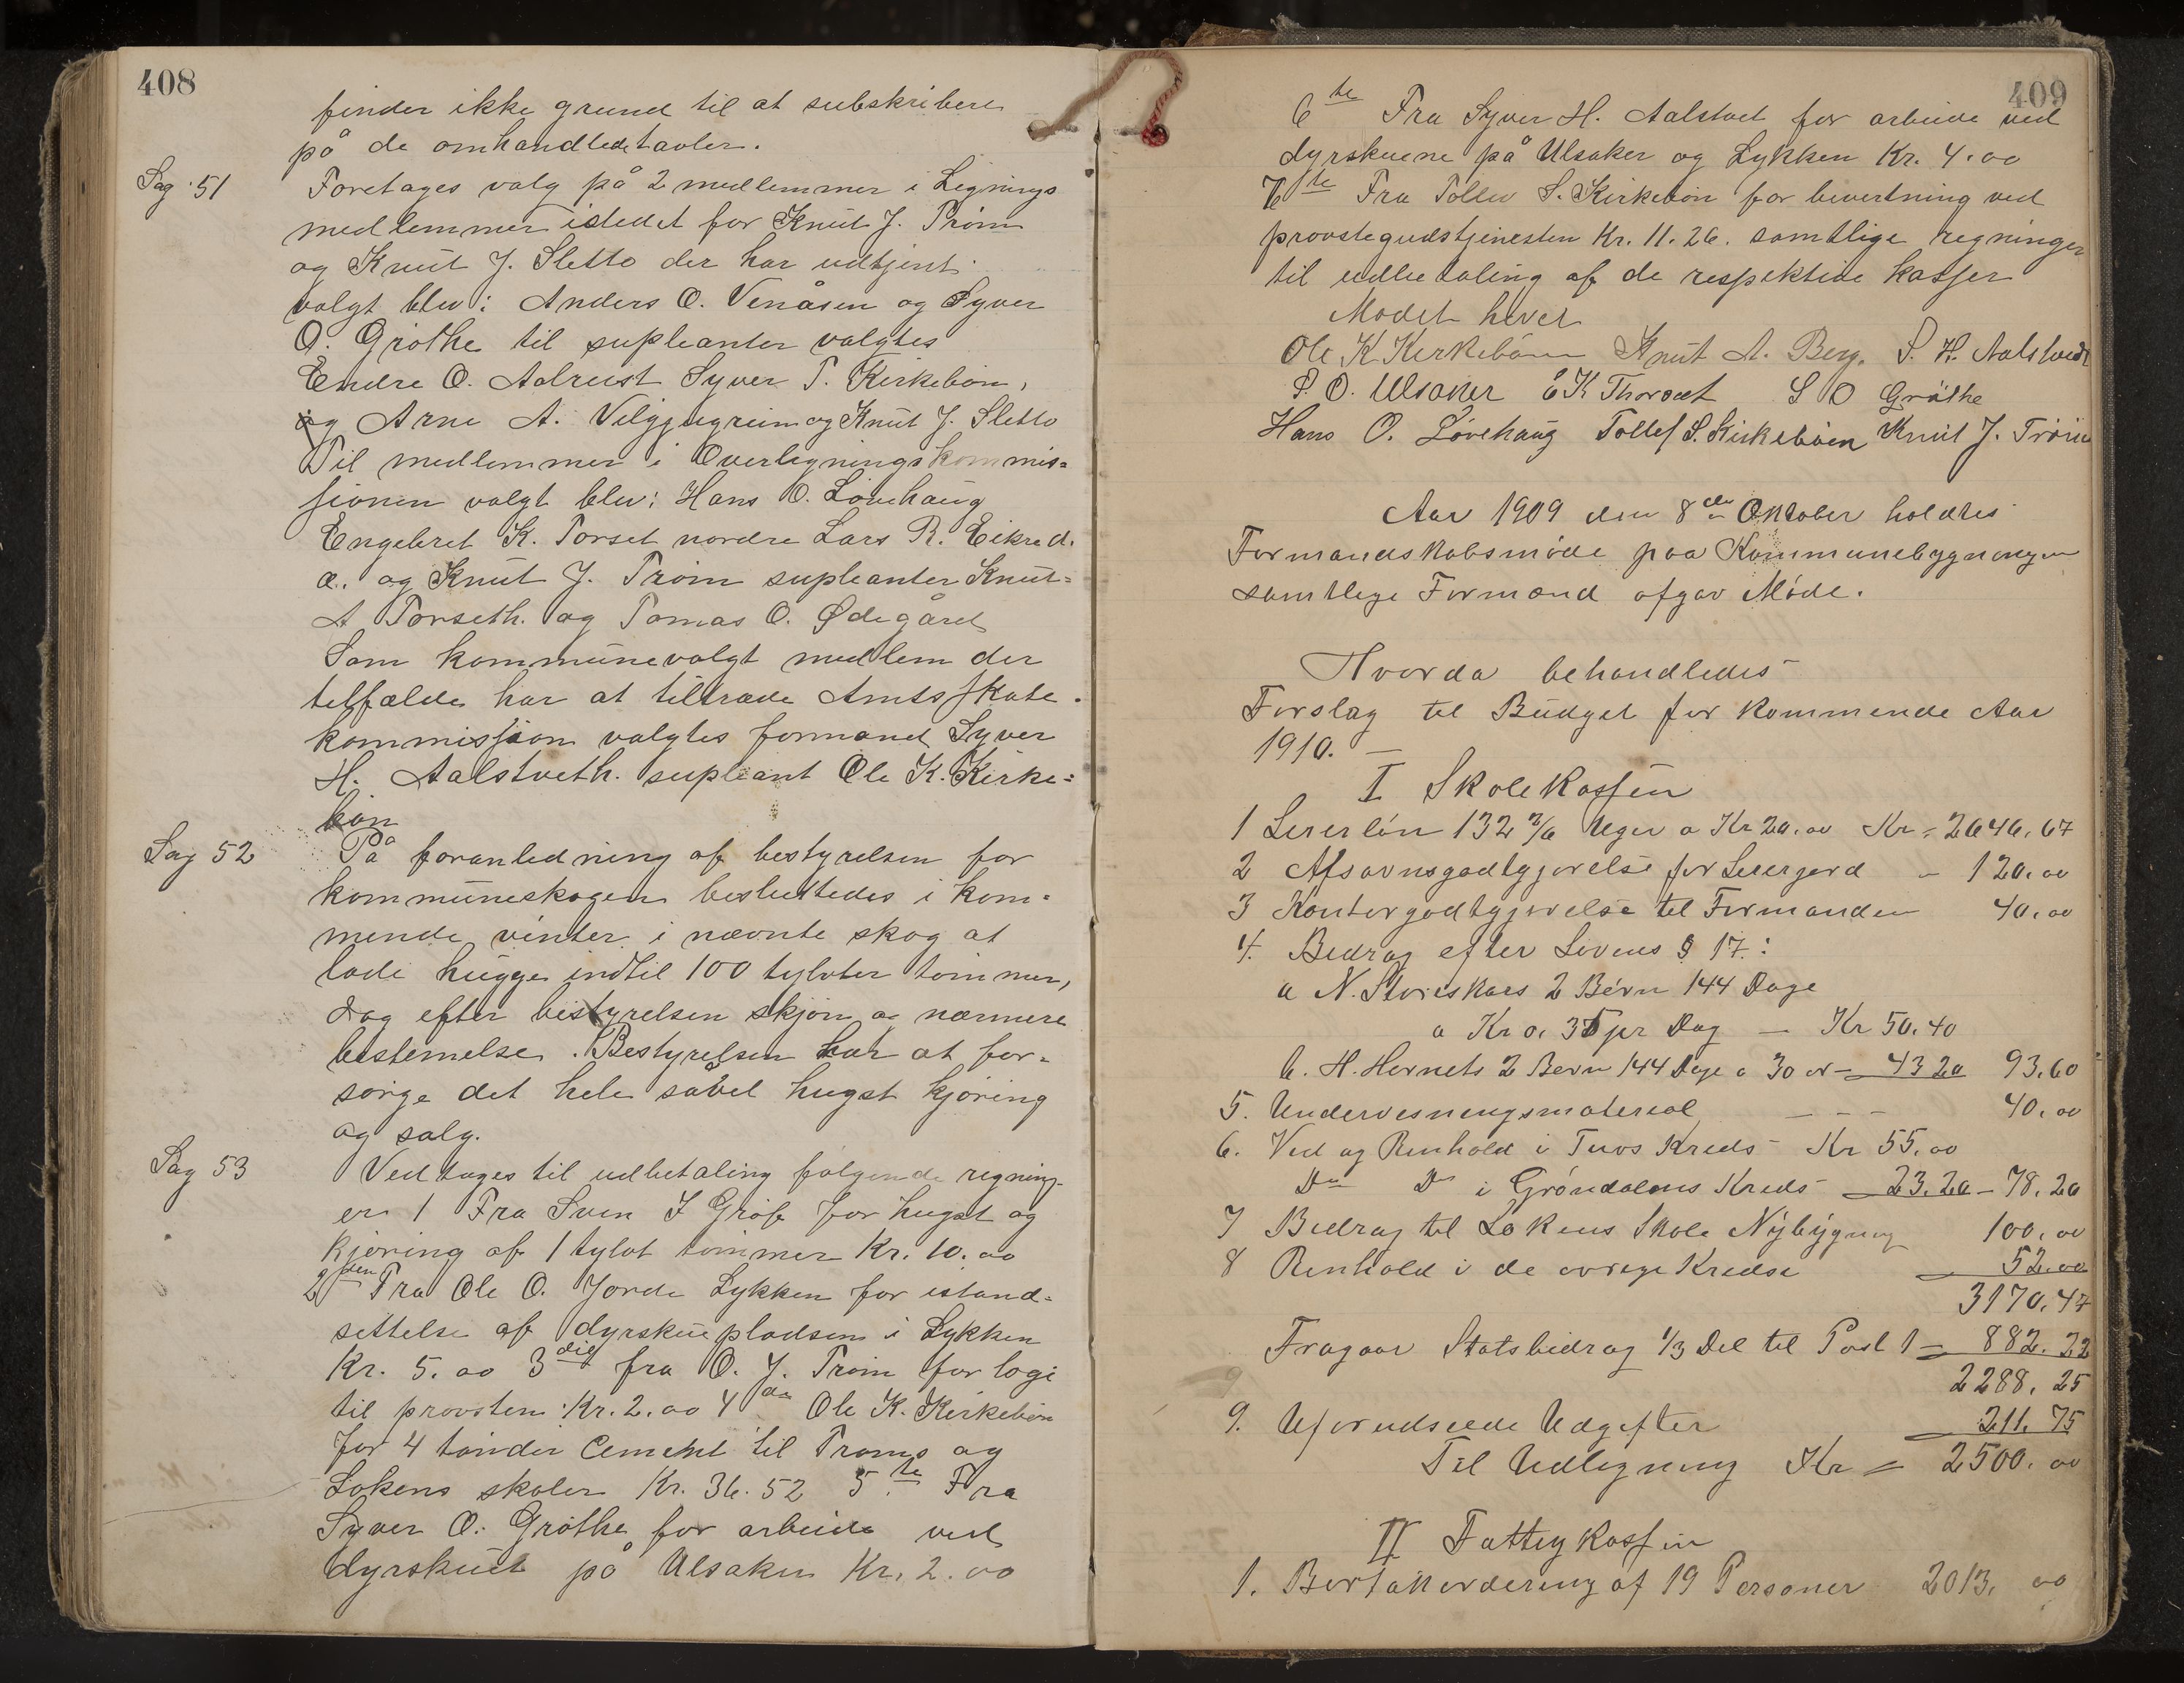 408
finder ikke grund til at subskribere
på de omhandlede tavler.
Sag 51 Foretages valg på 2 medlemmer i Lignings
medlemmer istedet for Knut J. Trøim
og Knut J. Sletto der har udtjent.
valgt blev: Anders O. Venåsen og Syver
O. Grøthe til supleanter valgtes
Endre O. Aalrust Syver T. Kirkebøn,
og Arne A. og Knut J. Sletto
Til medlemmer i Overligningskommis=
sionen valgt blev: Hans O. Løvehaug
Engebret K. Torset nordre Lars R. Eikre d.
æ. og Knut J. Trøim supleanter Knut=
A Torseth. og Tomas O. Ødegård
Som kommunevalgt medlem der
tilfælde har at tiltræde Amtsskate=
kommission valgtes formand Syver
H. Aalstveth. supleant Ole K. Kirke=
bøn
Sag 52 På foranledning af bestyrelsen for
kommuneskogen besluttedes i kom=
mende vinter i nævnte skog at
lade hugge indtil 100 tylvter tømmer,
dog efter bestyrelsen skjøn og nærmere
bestemelse. Bestyrelsen har at for=
sørge det hele såvel hugst kjøring
og salg.
Sag 53 Vedtages til udbetaling følgende regning-
er 1 Fra Sven S Grøte for hugst og
kjøring af 1 tylvt tømmer Kr. 10.00
2den Fra Ole O. Jorde Lykken for istand=
settelse af dyrskuepladsen i Lykken
Kr. 5.00 3die fra O. J. Trøim for logi
til provsten Kr. 2.00 4de Ole K. Kirkebøn
for 4 tønder Cement til Trøms og
Løkens skoler Kr. 36.52 5.te Fra
Syver O. Grøthe for arbeide ved
dyrskuet på Ulsaker Kr. 2.00
409
6te Fra Syver H. Aalstvet for arbeide ved
dyrskuene på Ulsaker og Lykken Kr. 4.00
7te Fra Tollev S. Kirkebøn for bevertning ved
provstegudstjenesten Kr. 11.26. samtlige regninger
til udbetaling af de respektive kasser
Mødet hevet
Ole K Kirkebøen Knut A. Berg. S. H. Aalstvedt
S. O. Ulsaker O K Thorset S O Grøthe
Hans O. Løvehaug Tollef S. Kirkebøen Knut J. Trøim
Aar 1909 den 8de Oktober holdtes
Formandskabsmøde paa Kommunebygningen
samtlige Formænd afgav Møde.
Hvorda behandledes
Forslag til Budget for kommende Aar
1910. —
I Skolekassen
1 Lererløn 132 2/6 Uger a Kr 20.00 Kr = 2646.67
2 Afsavnsgodtgjørelse for Lererjord - 120.00
3 Kontorgodtgjørelse til Formanden 40.00
4. Bedrag efter Lovens § 17.:
a N. Storeskars 2 Børn 144 Dage
a Kr 0.35 pr Dag — Kr 50.40
b. H. Hernets 2 Børn 144 Dage a 30 ør = 43 20 93.60
5. Undervesningsmateriel - - - 40.00
6. Ved og Renhold i Tuvs Kreds Kr 55.00
Do Do i Grøndalens Kreds - 23.20 - 78.20
7 Bedrag til Løkens Skole Nybygning 100.00
8 Renhold i de øvrige Kredse 52.00
3170.47
Fragaar Statsbidrag 1/3 Del til Post 1 = 882.22
2288.25
9. Uforudseede Udgifter 211.75
Til Udligning Kr = 2500.00
II Fattigkassen
1. Bortakordering af 19 Personer 2013.00